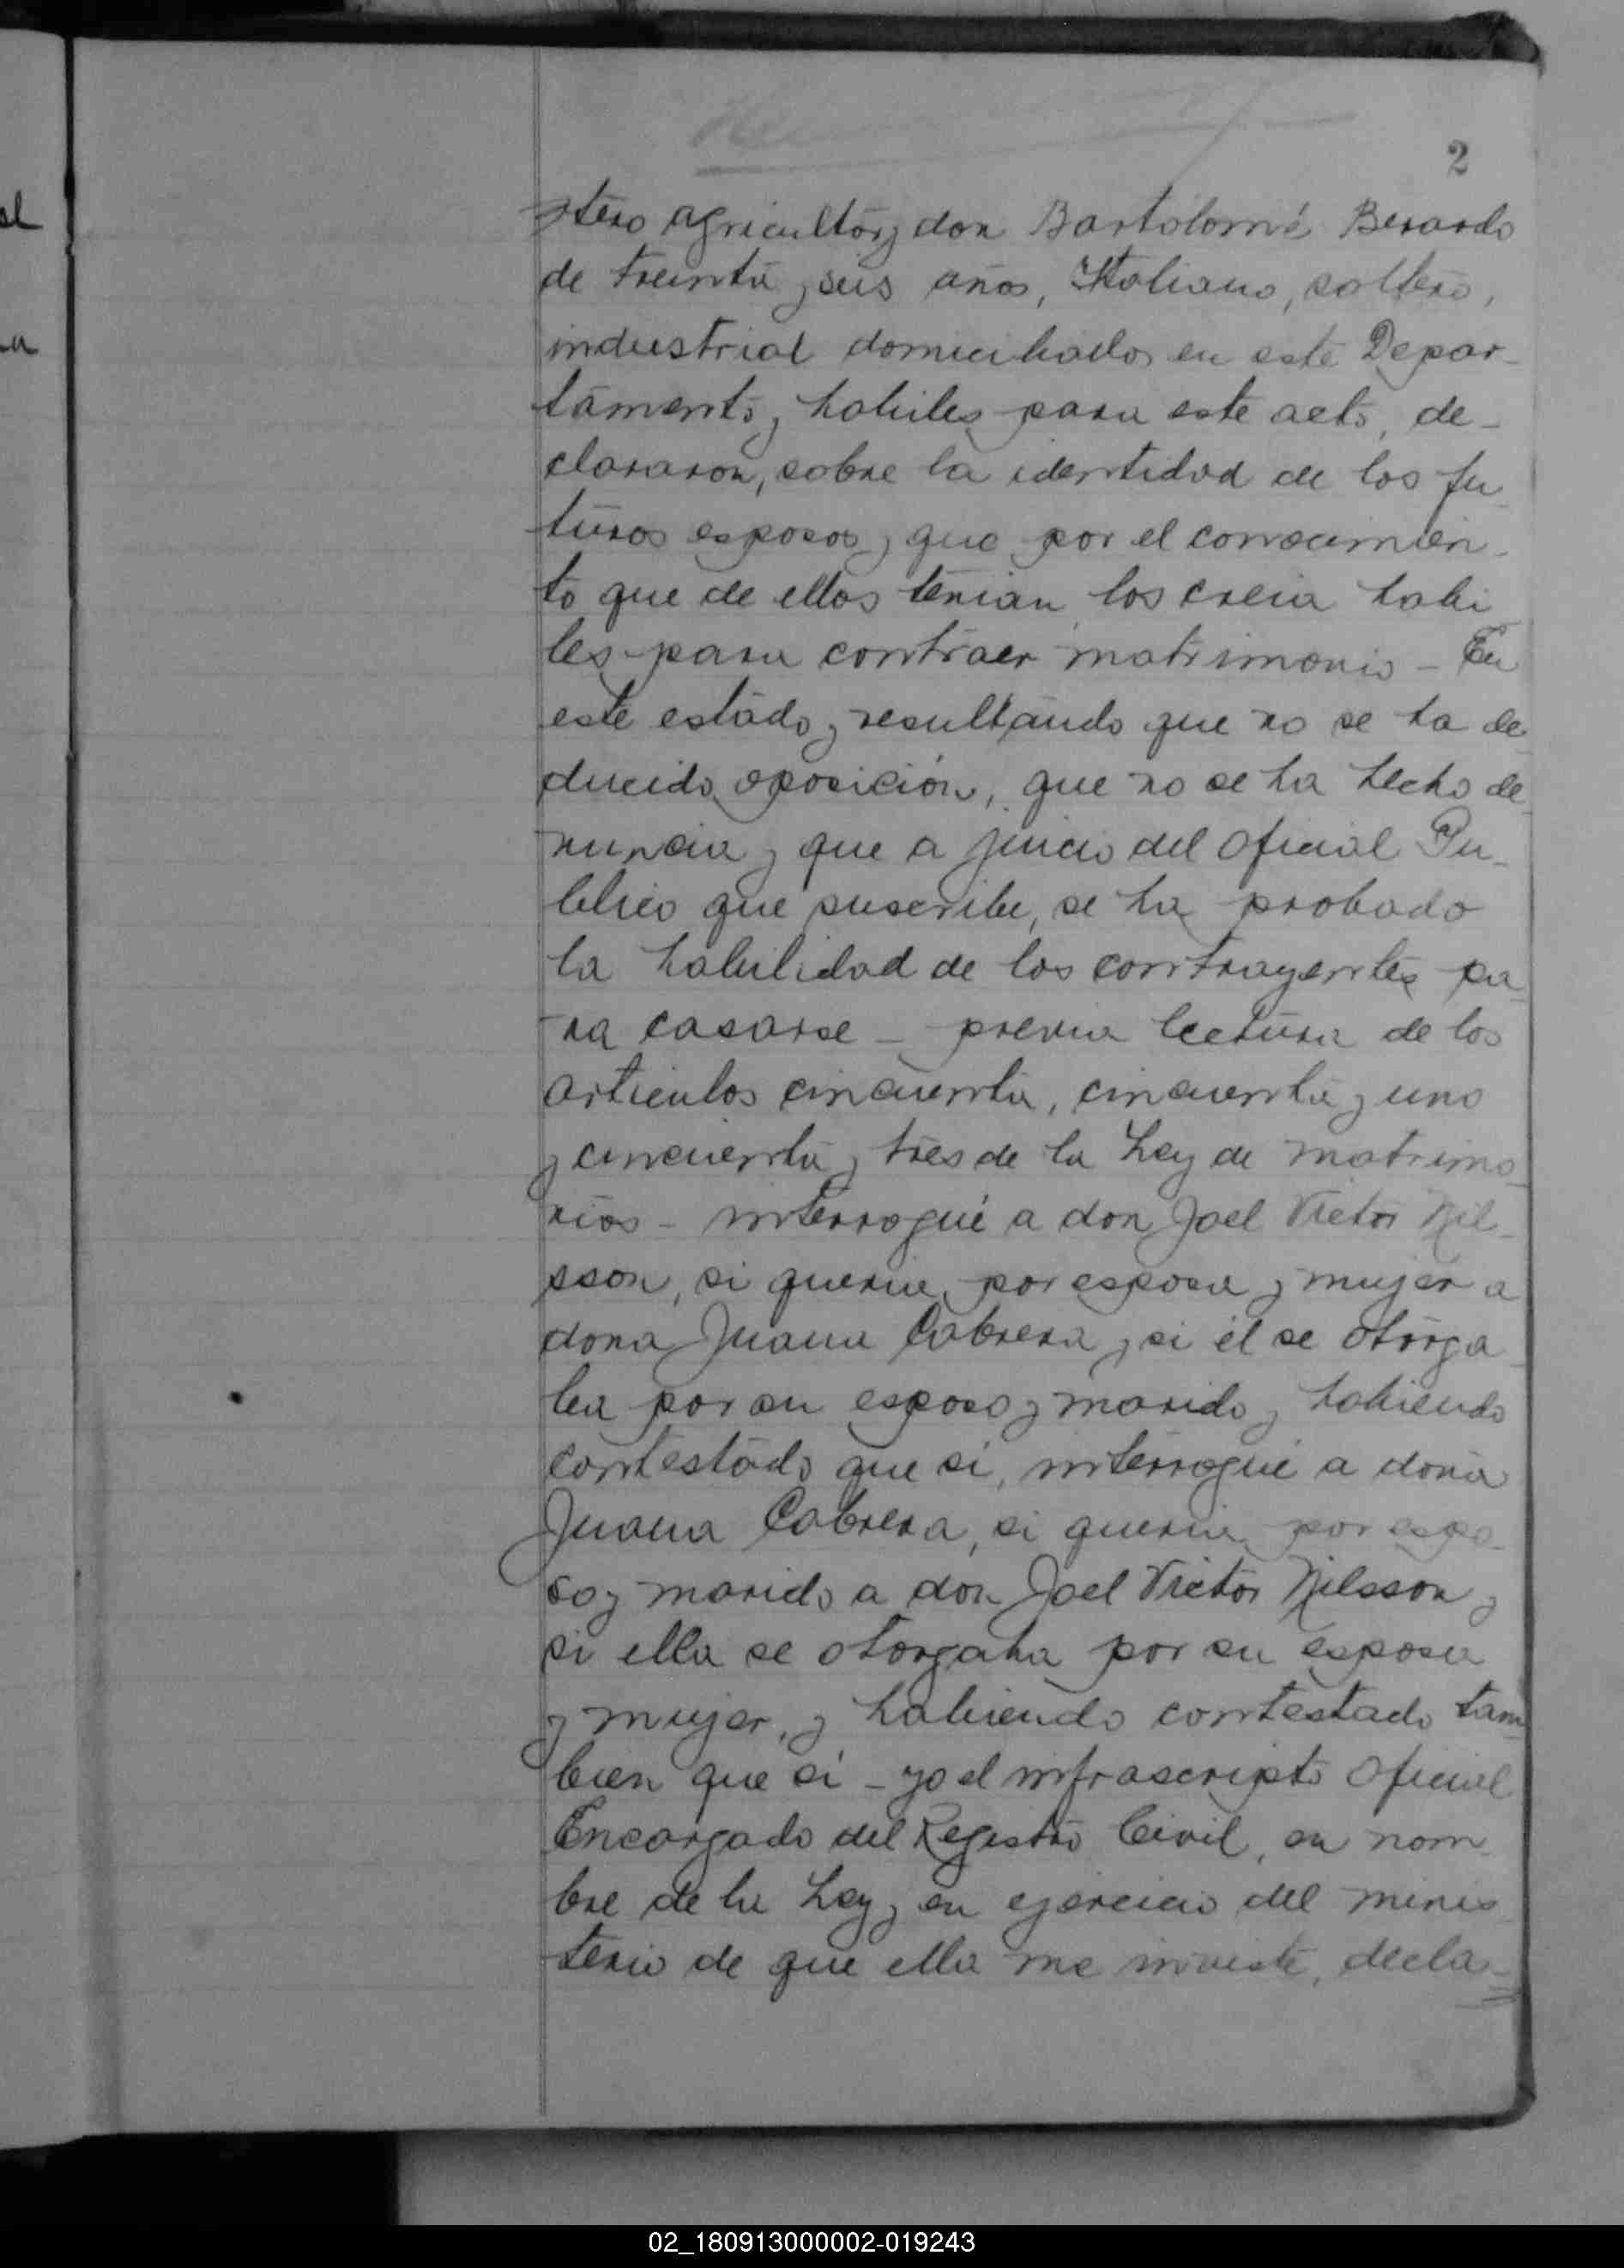 2
tero agricultor y don Bartolomé Berardo
de treinta y seis años, Italiano, soltero,
industrial domiciliados en este Depar-
tamento y habiles para este acto, de-
clararon, sobre la identidad de los fu
turos esposos y que por el conocimien-
to que de ellos tenian los creia habi
les para contraer matrimonio - En
este estado y resultando que no se ha de
ducido oposición, que no se ha hecho de
nuncia y que a juicio del Oficial Pu-
blico que suscribe, se ha probado
la habilidad de los contrayentes pa
ra casarse - previa lectura de los
articulos cincuenta, cincuenta y uno
y cincuenta y tres de la Ley de matrimo-
nios - interrogué a don Joel Victor Nil-
sson, si queria por esposa y mujer a
dona Juana Cabrera y si él se otorga
ba por su esposo y marido y habiendo
contestado que si, interrogué a doña
Juana Cabrera, si queria por espo-
so y marido a don Joel Victor Nilsson y
si ella se otorgaba por su esposa
y mujer, y habiendo contestado tam
bien que sí - yo el infrascripto Oficial
Encargado del Registro Civil, en nom
bre de la Ley y en ejercicio del minis
terio de que ella me inviste, decla-
02_180913000002-019243